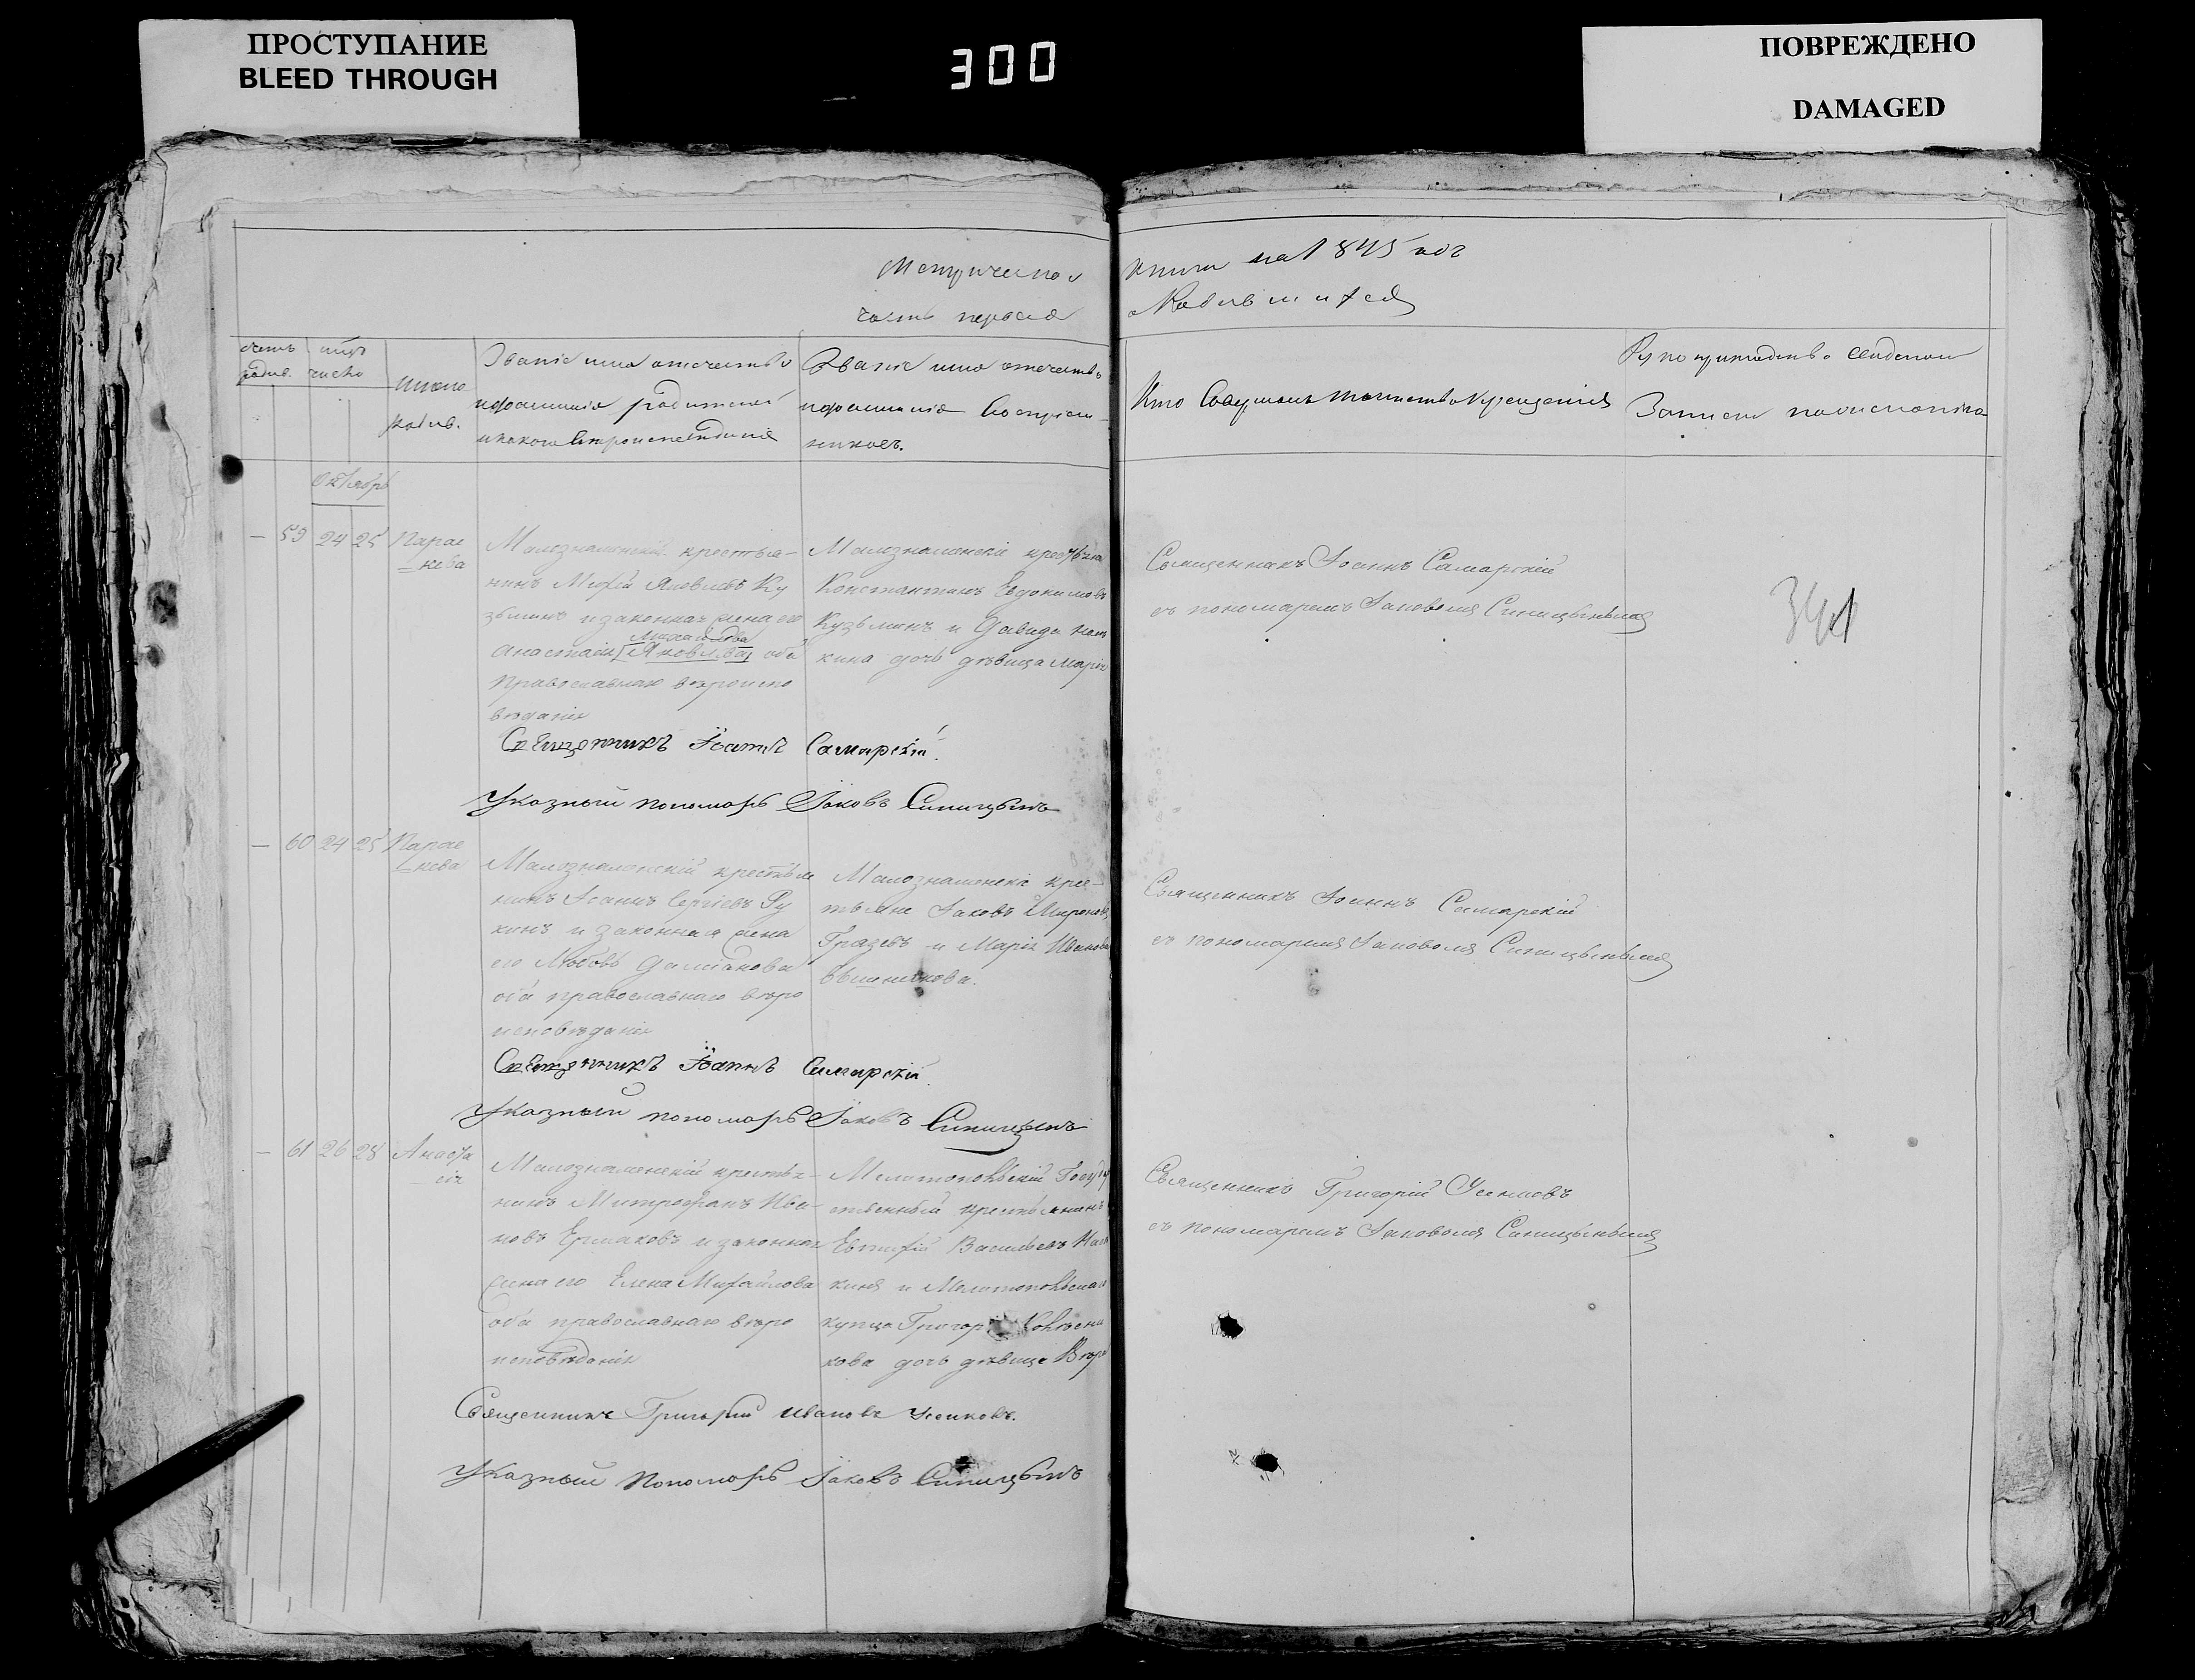 ПРОСТУПАНИЕ
BLEED THROUGH
300
ПОВРЕЖДЕНО
DAMAGED
Метрической
часть первая
книги на 1845 год
о родившихся
счетъ родив.
число
имена родив.
Званіе имя отечество
и фамилія родителей
и какого вероисповеданія
Званіе имя отечество
и фамилія восприем-
никовъ.
Кто совершалъ таинство крещенія
Рукоприкладство свидетелей
записи по желанію
Октябрь
— 59 24 25 Парас
кева
Малознаменскій крестья-
нинъ Яковлевъ Ку
зьминъ и законная жена его
Михайлова
Анастасія Яковлева оба
православнаго вѣроиспо
вѣданія
Малознаменскіе крестьяне
Константинъ Евдокимовъ
Кузьминъ и Давида
кина дочь дѣвица Марія
Священникъ Іоаннъ Самарскій
съ пономаремъ Іаковомъ Синицынымъ
341
Священникъ Іоаннъ Самарскій.
Указный пономарь Іаковъ Синицынъ
— 60 24 25 Парас
кева
Малознаменскій крестья
нинъ Іоаннъ Сергіевъ Ру
кинъ и законная жена
его Любовь Даміанова
оба православнаго вѣро
исповѣданія
Малознаменскіе крес-
тьяне Іаковъ Мироновъ
Грязевъ и Марія Иванова
Вѣшнякова.
Священникъ Іоаннъ Самарскій
съ пономаремъ Іаковомъ Синицынымъ
Священникъ Іоаннъ Самарскій.
Указный пономарь Іаковъ Синицынъ
— 61 26 28 Анаста
сія
Малознаменскій крестья-
нинъ Митрофанъ Ива-
новъ Ермаковъ и законная
жена его Елена Михайлова
оба православнаго вѣро
исповѣданія
Мелитопольскій Государ
ственный крестьянинъ
Евтифій Васильевъ
кинъ и Мелитопольскаго
купца Григорія
кова дочь дѣвица Вѣра
Священникъ Григорій Усиковъ
съ пономаремъ Іаковомъ Синицынымъ
Священникъ Григорій Ивановъ Усиковъ.
Указный пономарь Іаковъ Синицынъ